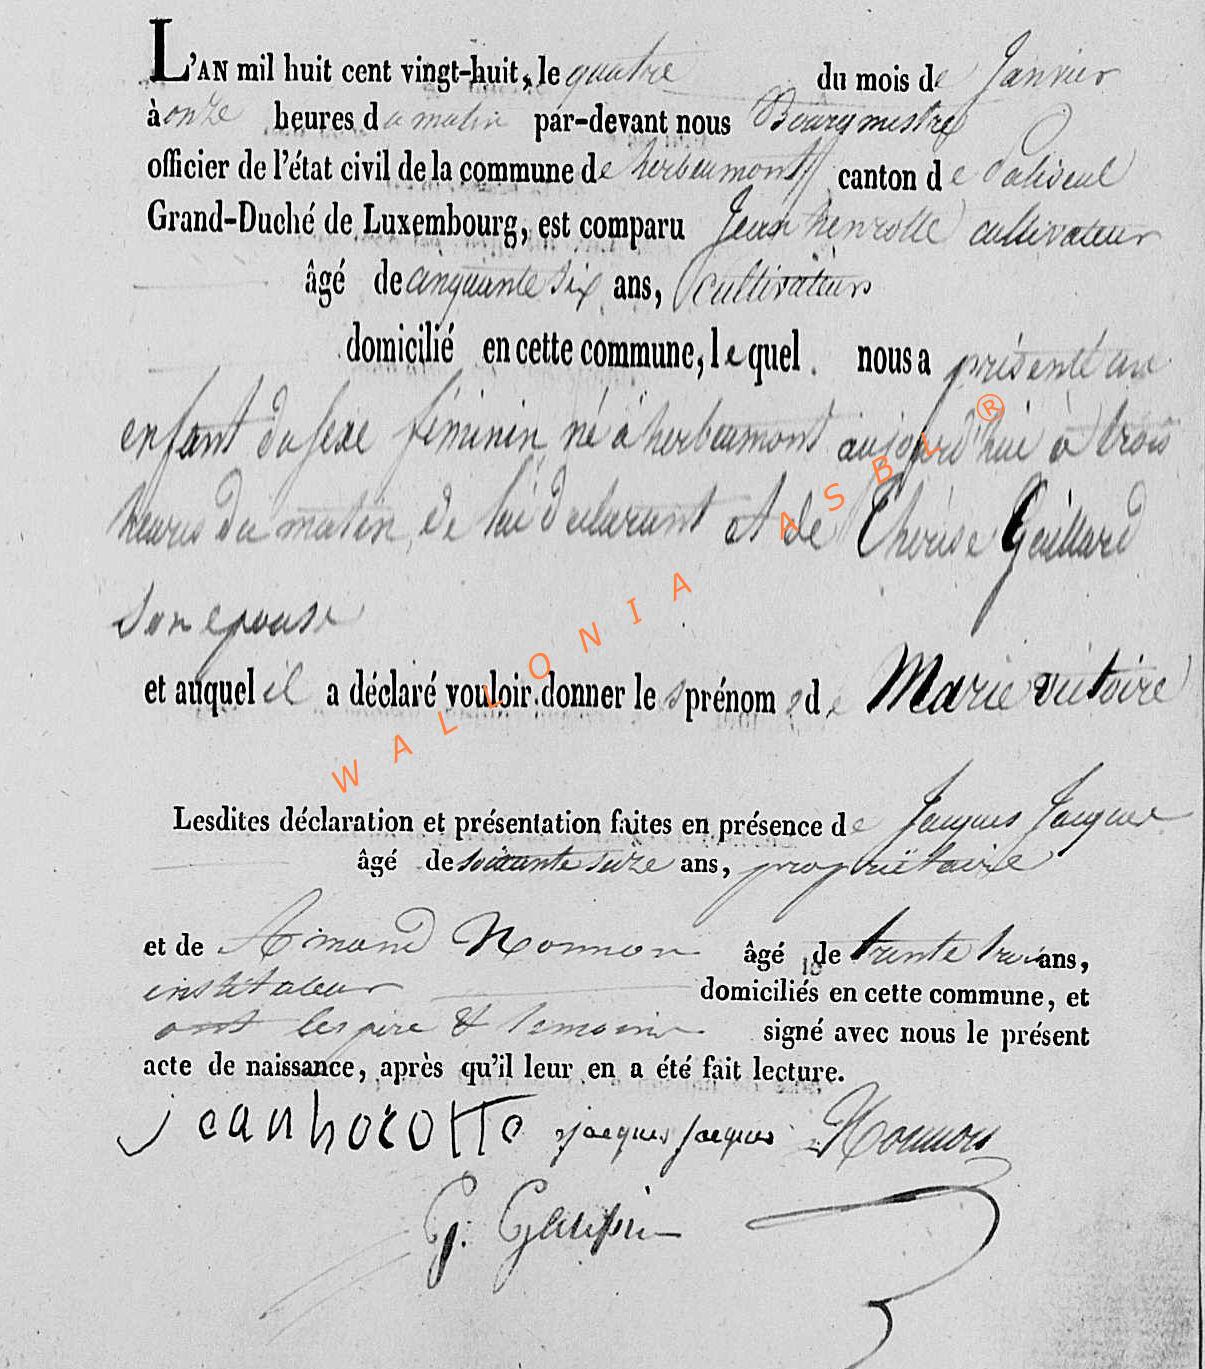 L'AN mil huit cent vingt-huit, le quatre du mois de Janvier
à onze heures da matin par-devant nous Bourgmestre
officier de l'état civil de la commune de herbeumont canton de
Grand-Duché de Luxembourg, est comparu Jean henrotte cultivateur
âgé de cinquante six ans, cultivateur
domicilié en cette commune, lequel nous a présenté un
enfant du sexe féminin né à herbeumont aujourd'hui à trois
heures du matin, de lui déclarant et de Thérèse Gaillard
son epouse
et auquel il a déclaré vouloir donner les prénoms de Marie victoire
Lesdites déclaration et présentation faites en présence de Jacques Jacques
âgé de soixante seize ans, propriétaire
et de Armand Nonnon âgé de trente trois ans,
instituteur domiciliés en cette commune, et
ont les père & temoins signé avec nous le présent
acte de naissance, après qu'il leur en a été fait lecture.
jean horotte jacques jacques Nonnon
G.
WALLONIA ASBL ®